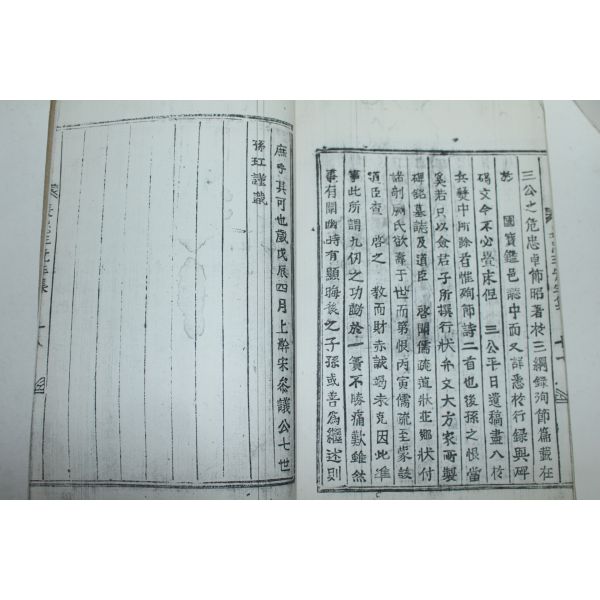 三公之危忠卓節昭著於三綱錄殉節篇載在
國寶鑑邑誌中而又詳悉於行錄與碑
碣文今不必疊床但 三公平日遺稿盡入於
兵燹中所餘者惟殉節詩二首也後孫之恨當
奚若只以僉君子所撰行狀弁文大方家所製
碑銘墓誌及道臣 啓聞儒疏道狀並鄉狀付
諸剞劂氏欲壽于世而第恨丙寅儒疏至蒙該
道臣査 啓之 教而財赤誠過未克因此準
事此所謂九仞之功虧於一簣不勝痛歎雖然
事有關幽時有顯晦後之子孫或善爲繼述則
庶乎其可也歲戊辰四月上幹宋叅議公七世
孫玒謹識